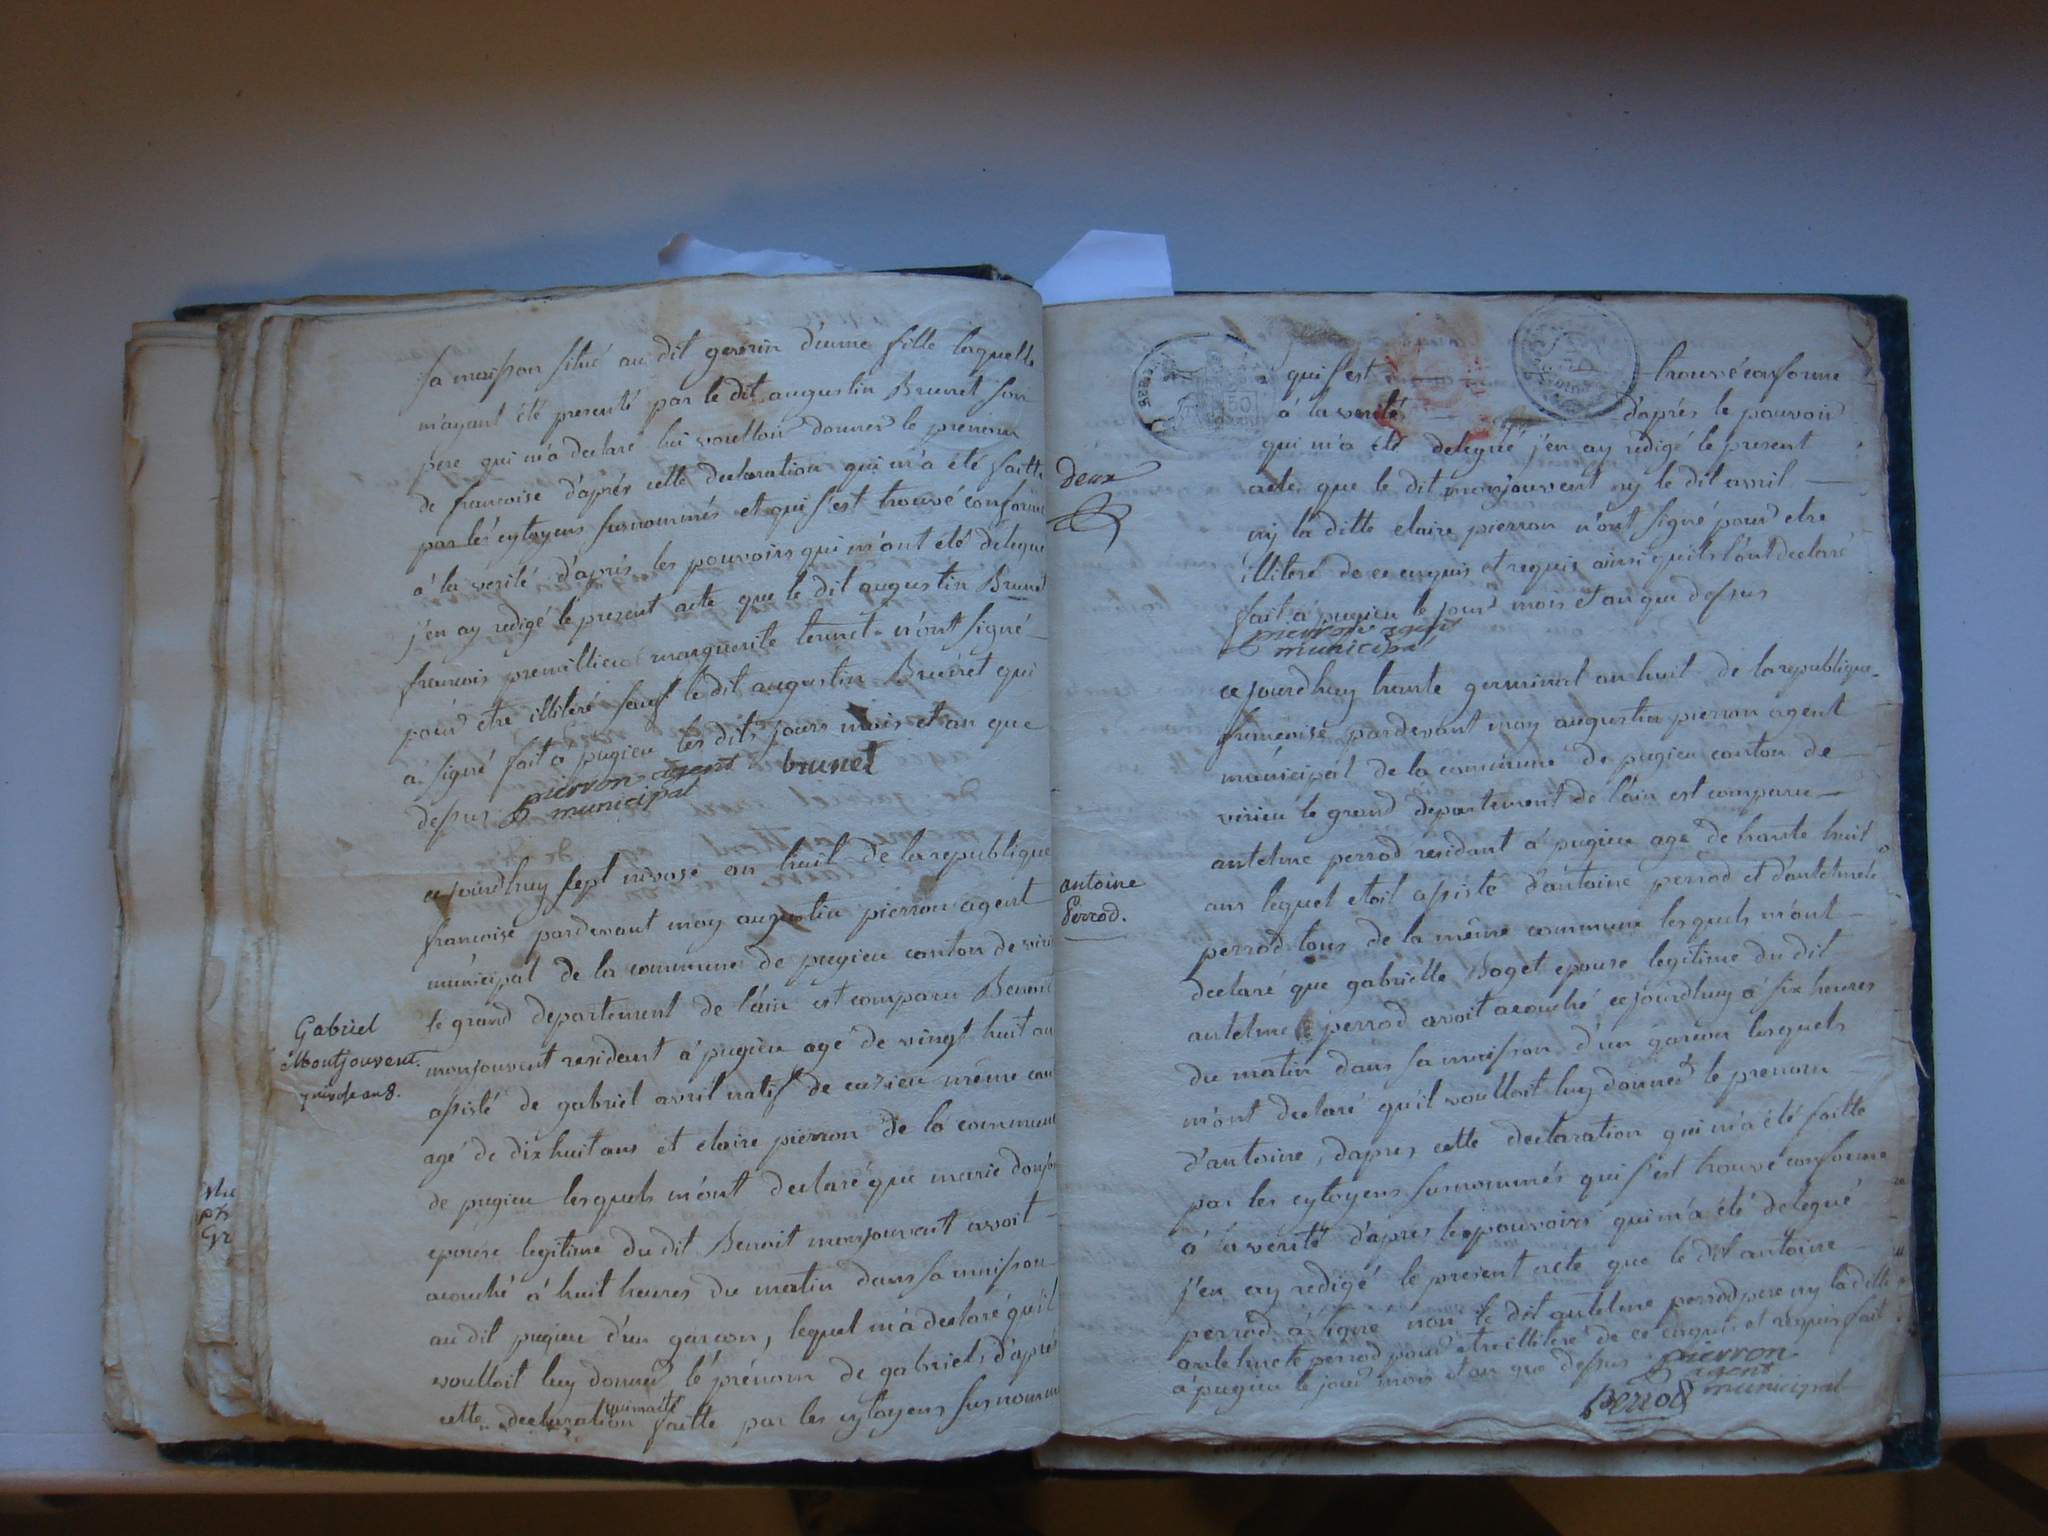 sa maison situé au dit gevrin d'eune fille laquelle
m'ayant été presenté par le dit augustin Brunet son
pere qui m'a declaré lui voulloir donner le prenom
de francoise d'aprés cette declaration qui m'a été faitte
par les cytoyens susnommés et qui s'est trouvé conforme
à la verité d'aprés les pouvoirs qui m'ont été délegué
j'en ay redigé le present acte que le dit augustin Brunet
francois premillieu marguerite n'ont signé
pour etre illiteré sauf le dit augustin Brunet qui
à signé fait a pugieu les dits jours mois et an que
dessus pierron agent brunet
municipal
ce jourdhuy sept nivose an huit de la republique
francoise pardevant moy augustin pierron agent
municipal de la commune de pugieu canton de viri
le grand departement de l'ain est comparu Benoit
Gabriel
Montjouvent
monjouvent resident à pugieu agé de vingt huit an
assisté de gabriel avril natif de cuzieu même can
agé de dix huit ans et claire pierron de la commune
de pugieu lesquels m'ont declaré que marie
epouse legitime du dit Benoit monjouvent avoit
acouché à huit heures du matin dans sa maison
au dit pugieu d'un garcon, lequel m'a declaré qu'il
voulloit luy donner le prénom de gabriel d'aprés
cette declaration qui m'a été faitte par les cytoyens susnommé
qui s'est trouvé conforme
à la verité d'aprés le pouvoir
qui m'a été delegué j'en ay redigé le present
deux
acte que le dit monjouvent ny le dit avril
ny la ditte claire pierron n'ont signé pour etre
illiteré de ce enquis et requis ainsi qu'ils l'ont declaré
fait à pugieu le jour mois et an que dessus
pierron agent
municipal
ce jourdhuy trante germinal an huit de la republique
francoise pardevant moy augustin pierron agent
municipal de la commune de pugieu canton de
virieu le grand departement de l'ain est comparu
antelme perrod residant à pugieu agé de trante huit
antoine
Perrod.
ans lequel etoit assisté d'antoine perrod et d'antelmete
perrod tous de la même commune lesquels m'ont
declaré que gabriélle Boget epouse legitime du dit
antelme perrod avoit acouché ce jourdhuy à six heures
du matin dans sa maison d'un garcon lesquels
m'ont declaré qu'il voulloit luy donner le prenom
d'antoine, d'apres cette declaration qui m'a été faitte
par les cytoyens susnommés qui s'est trouvé conforme
à la verité d'apres les pouvoirs qui m'a été delegué
j'en ay redigé le present acte que le dit antoine
perrod à signé non le dit antelme perrod pere ny la ditte
antelmete perrod pour etre illiteré de ce enquis et requis fait
à pugieu le jour mois et an que dessus pierron
agent
municipal
Perrod